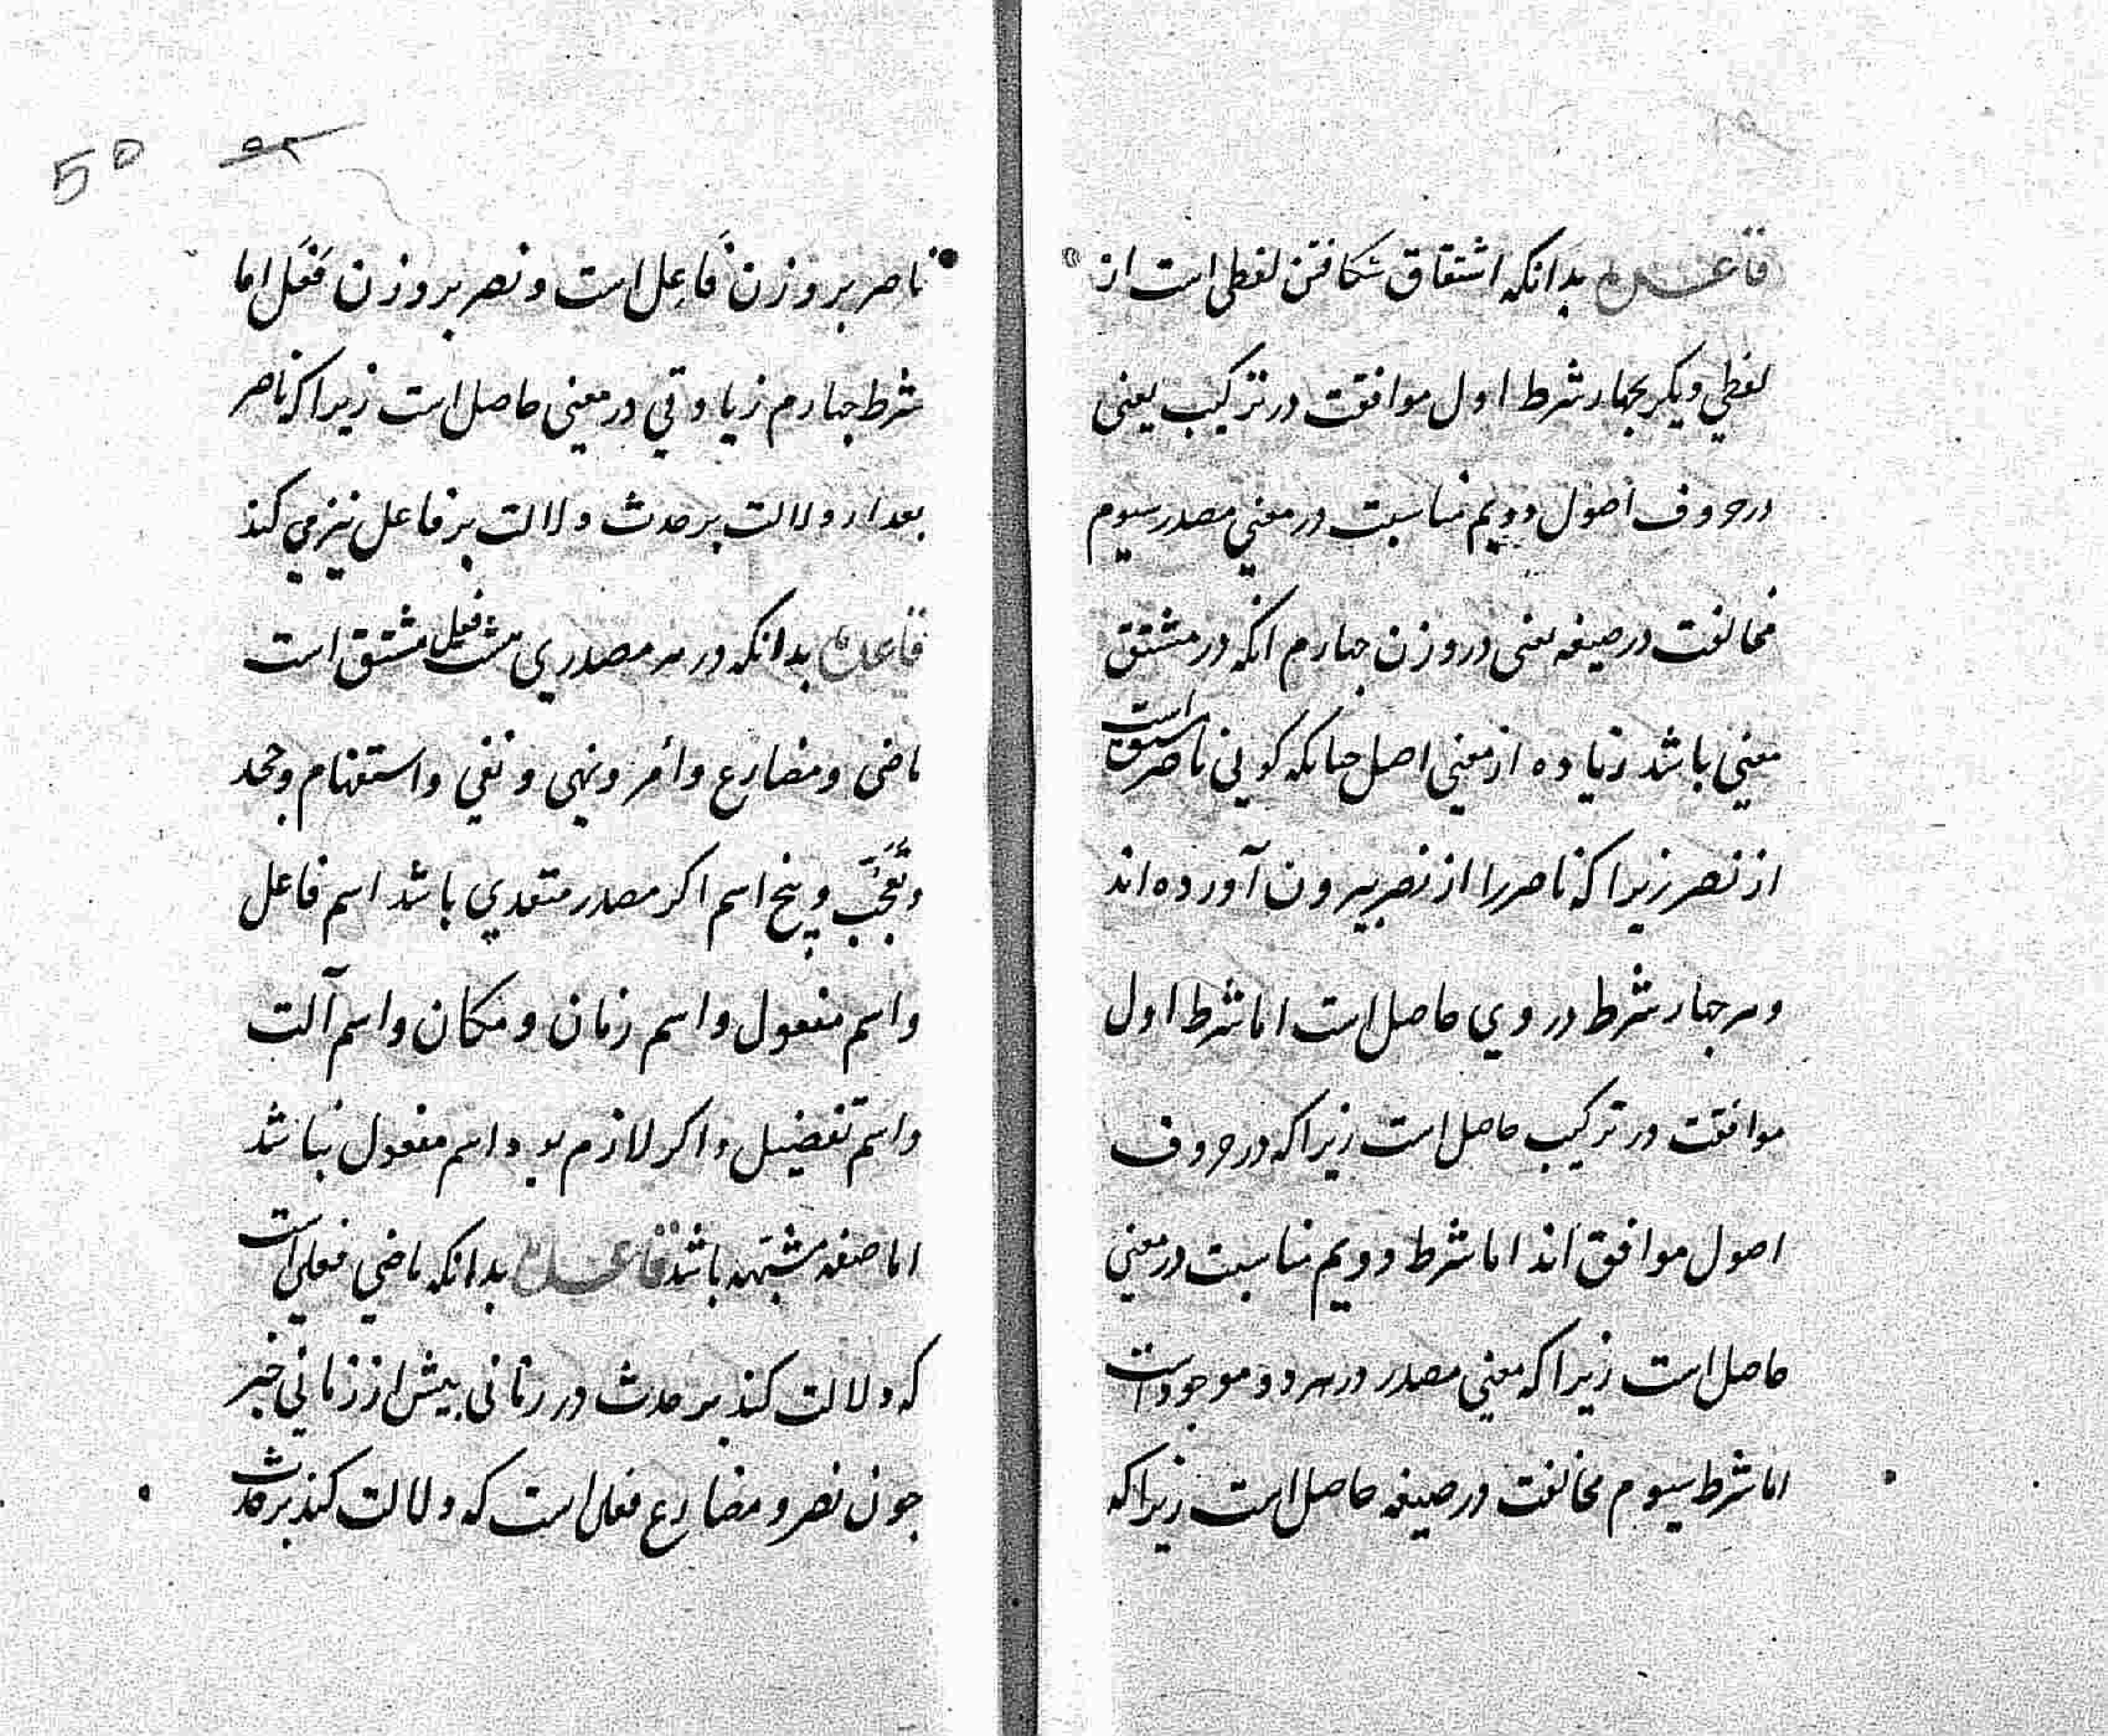 قاعده بدانکه اشتقاق شکافتن لفظی است از
لفظي ديکر بجهار شرط اول موافقت در ترکیب یعنی
در حروف اصول دويم مناسبت در معني مصدر سيوم
مخالفت در صیغه یعنی در وزن جهارم انکه در مشتق
معني باشد زیاده از معني اصل جنانکه کویی ناصر مشتق است
از نصر زیرا که ناصر را از نصر بیرون آورده اند
و هر جهار شرط در وي حاصل است اما شرط اول
موافقت در ترکیب حاصل است زیرا که در حروف
اصول موافق اند اما شرط دويم مناسبت در معني
حاصل است زیرا که معني مصدر در هر دو موجود است
اما شرط سيوم مخالفت در صیغه حاصل است زیرا که
50
ناصر بر وزن فَاعِل است و نصر بر وزن فَعَل اما
شرط جهارم زیادتي در معنی حاصل است زیرا که ناصر
بعد از دلالت بر حدث دلالت بر فاعل نیز مي کند
قاعده بدانکه در هر مصدري هشت فعل مشتق است
ماضی و مضارع و امر و نهی و نفي و استفهام و جحد
و تَعَجُّب و پنج اسم اکر مصدر متعدي باشد اسم فاعل
و اسم مفعول و اسم زمان و مکان و اسم آلت
و اسم تفضیل و اکر لازم بود اسم مفعول نباشد
اما صفه مشبّهه باشد قاعده بدانکه ماضي فعلي است
که دلالت کند بر حدث در زمانی پیش از زماني خبر
جون نصر و مضارع فعلی است که دلالت کند بر حدث